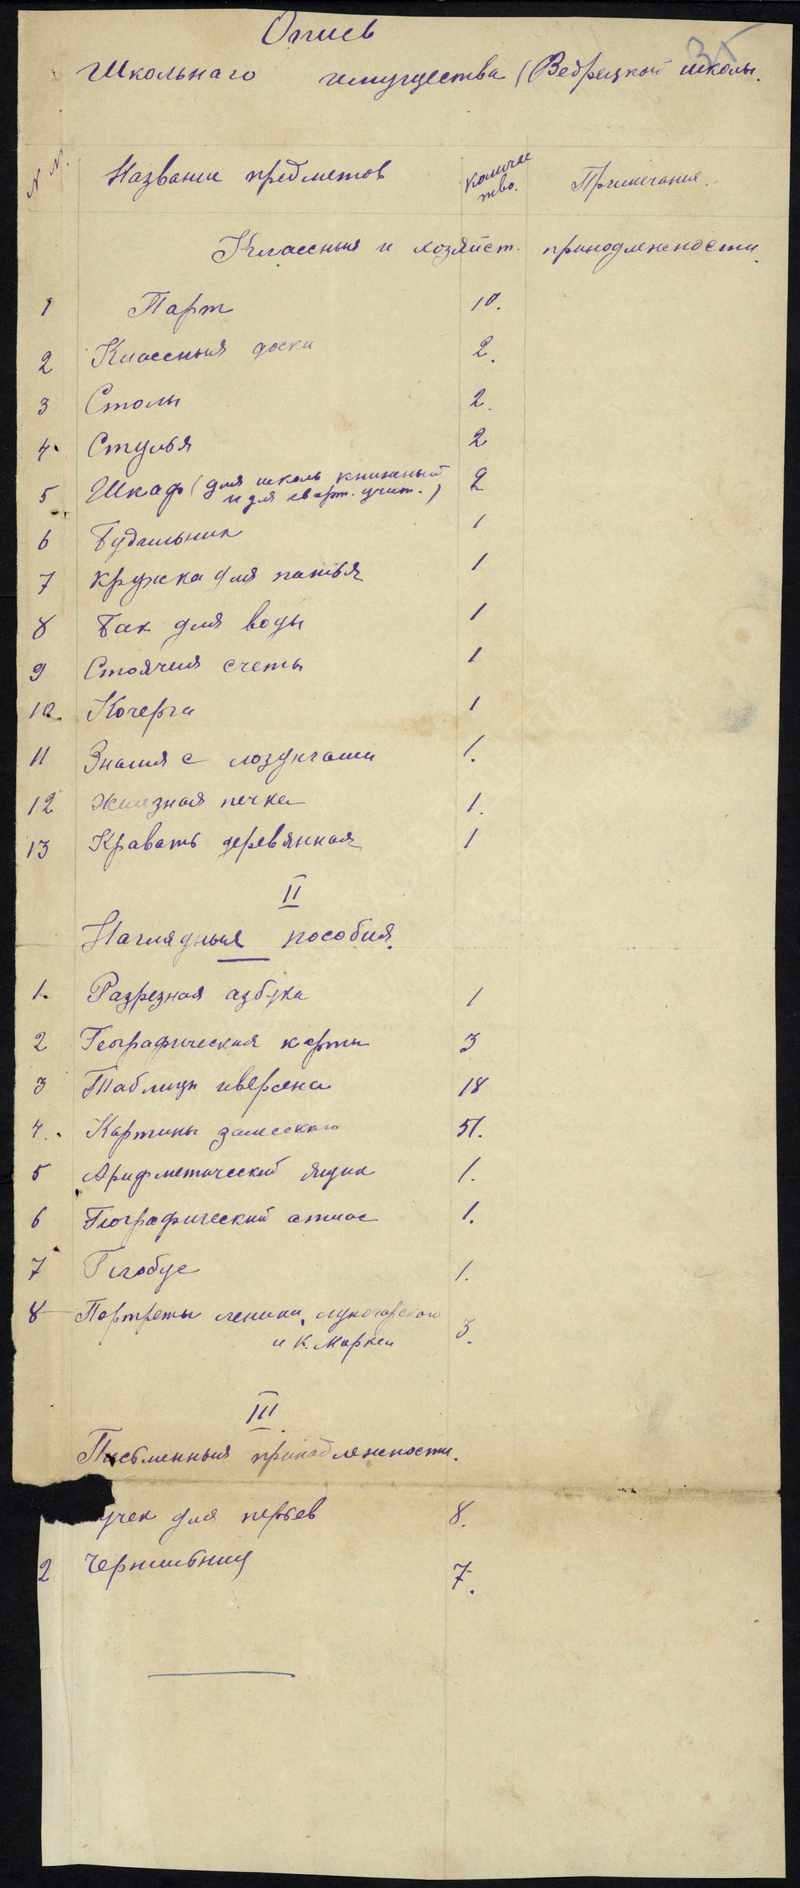 35
Опись
Школьнаго имущества (Ведрецкой школы.
N N. Название предметов Количес Примечания.
тво.
Классныя и хозяйст. принодлежности.
1 Парт 10.
2 Классныя доски 2.
3 Столы 2.
4. Стулья 2
5 Шкаф (для школь книжный 2
и для кварт. учит.)
6 Будильник 1
7 Кружка для питья 1
8 Бак для воды 1
9 Стоячия счеты 1
10. Кочерга 1
11 Знамя с лозунгами 1.
12 Железная печка 1.
13 Кравать деревянная 1
II
Наглядныя пособия.
1. Разрезная азбука 1
2 Географическия карты 3
3 Таблицы иверсена 18
4. Картины залесского 51.
5 Арифметический ящик 1.
6 Географический атлас 1.
7 Глобус 1.
8 Портреты ленина, луночарского
и К. Маркса 3.
III
Письменныя принадлежности.
учек для перьев 8.
2 Чернильниц 7.